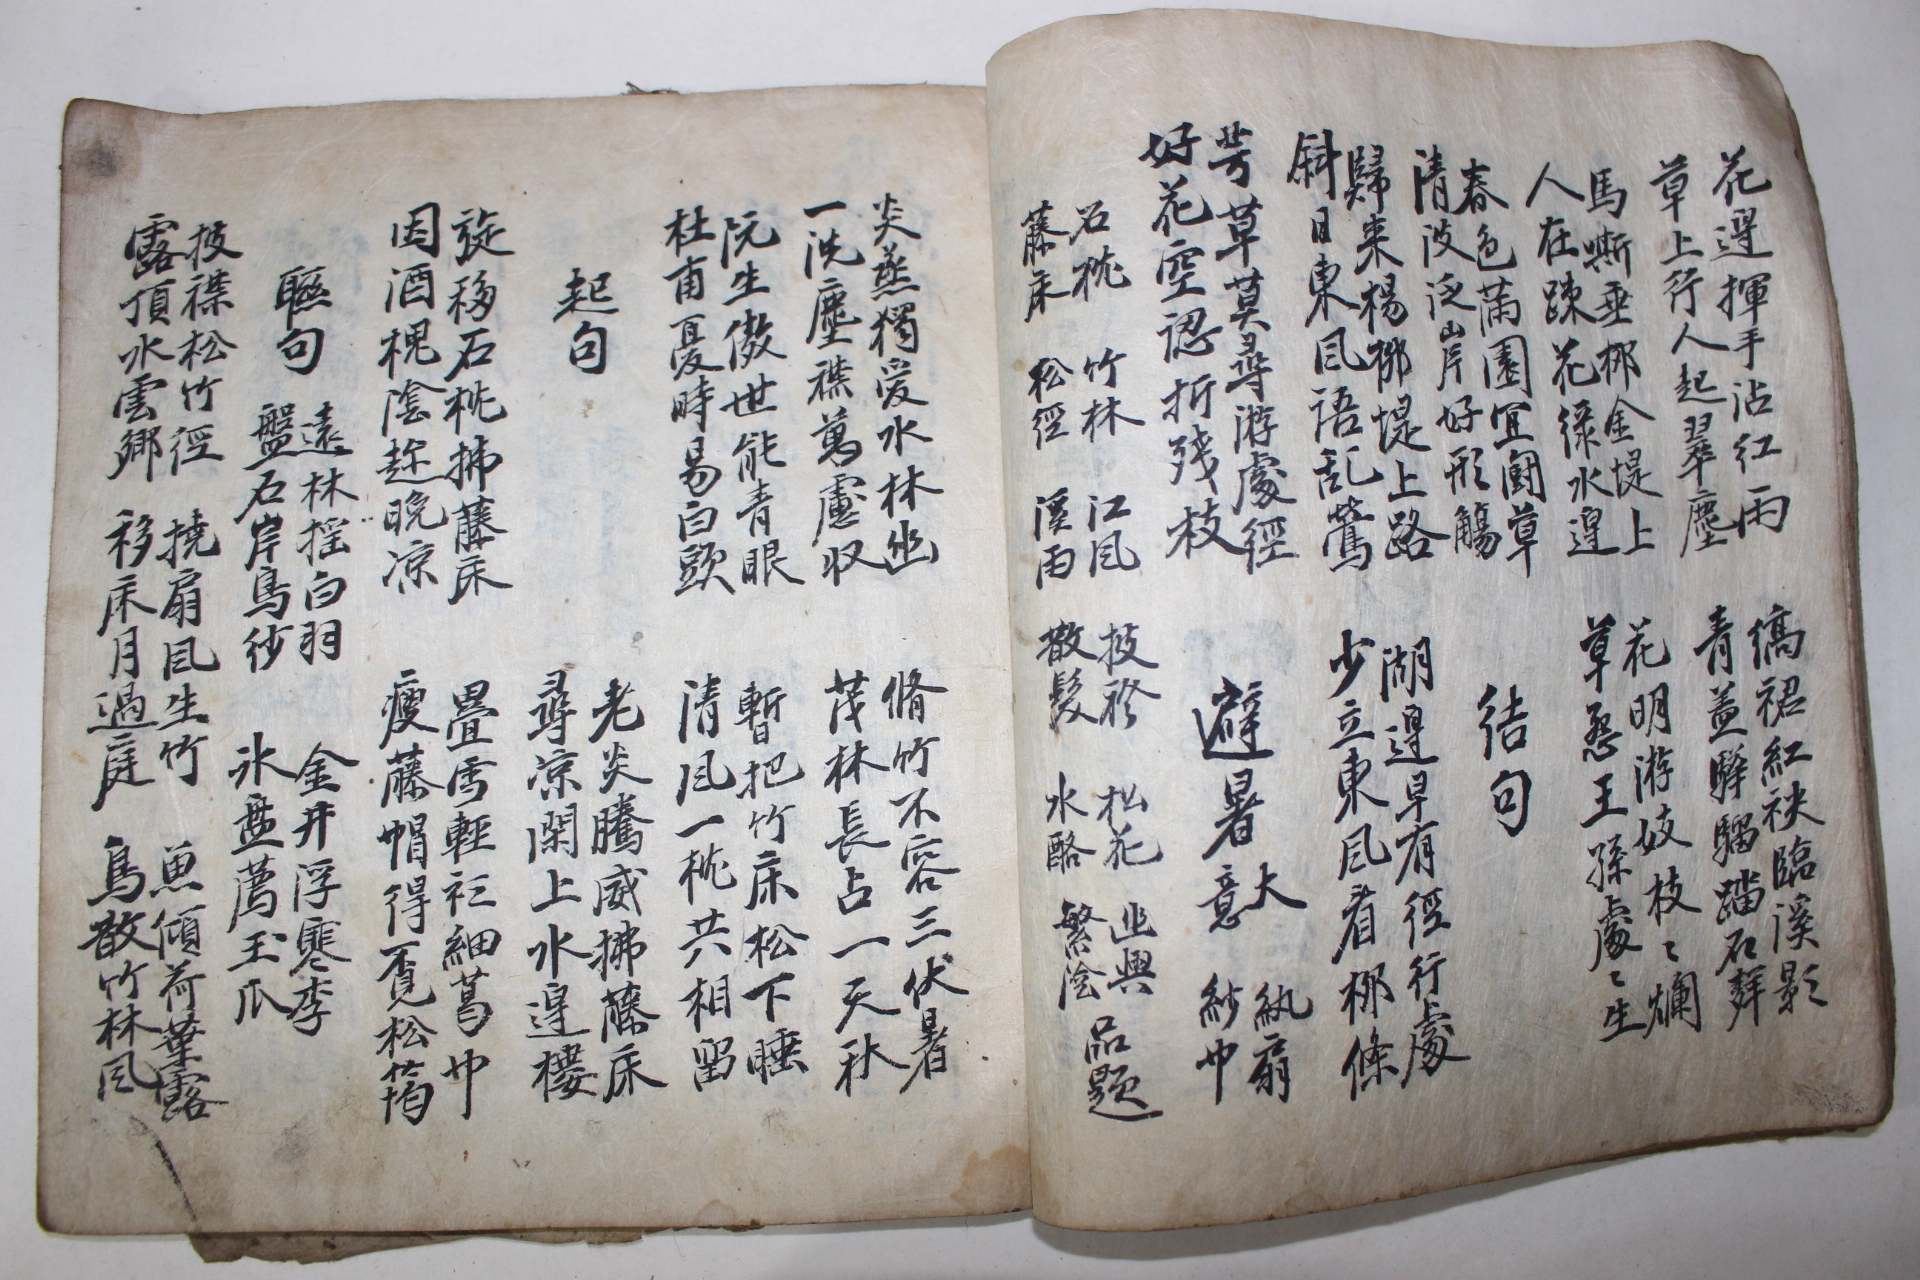 花邊揮手沾紅雨
草上行人起翠塵
縞裙紅袂臨溪影
青盖驊騮踏石聲
馬嘶垂柳金堤上
人在踈花綠水邊
花明游妓枝〻爛
草惹王孫處〻生
春色蒲園宜鬪草
清波泛岸好形觴
結句
歸來楊柳堤上路
斜日東風語乱鶯
湖邊早有徑行處
少立東風看柳條
芳草莫尋游處徑
好花空認折殘枝
避暑
大意
紈扇
紗巾
石枕
藤床
竹林
松徑
江風
溪雨
披襟
散髮
松花
水酪
幽興
繁陰
品題
炎蒸獨爱水林幽
一洗塵襟萬慮収
脩竹不容三伏暑
茂林長占一天秋
阮生傲世能青眼
杜甫憂時易白頭
暫把竹床松下睡
清風一枕共相留
起句
老炎騰威拂藤床
尋凉閑上水邊樓
旋移石枕拂藤床
因酒槐陰趂晚凉
疊雪輕衫細葛巾
瘦藤帽得覔松筠
聯句
遠林搖白羽
盤石岸烏紗
金井浮寒李
氷盘薦玉瓜
披襟松竹徑
露頂水雲鄉
撓扇風生竹
移床月過庭
魚傾荷葉露
鳥散竹林風